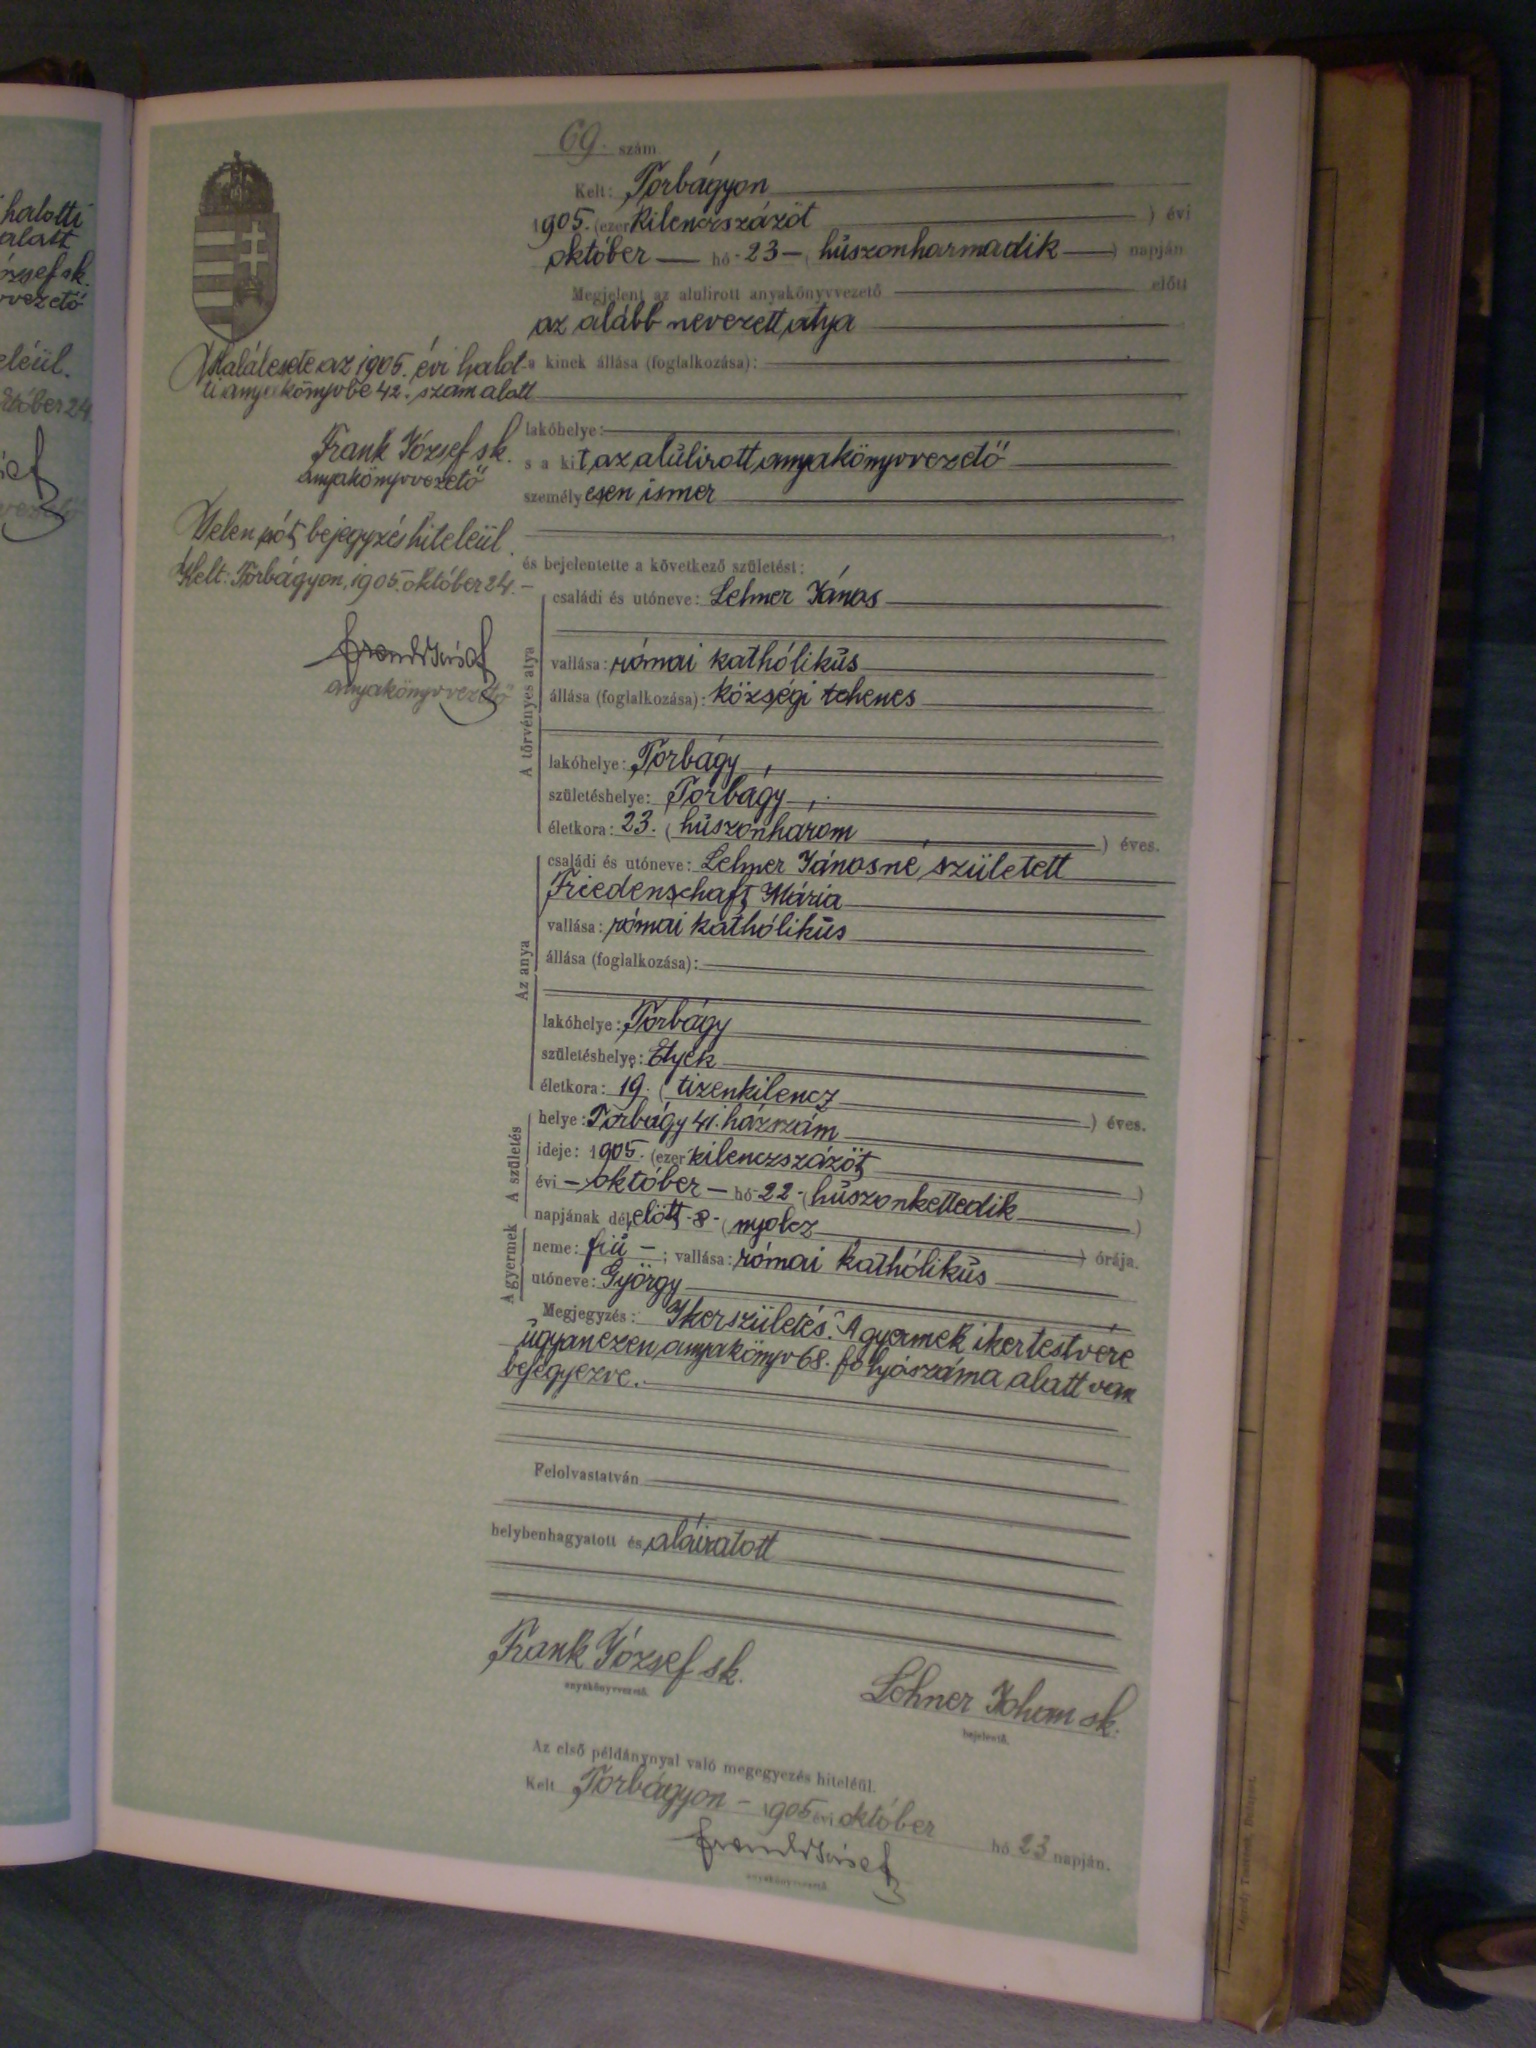 69. szám
Kelt: Torbágyon
1905. (ezer kilenczszázöt ) évi
október — hó - 23 - ( huszonharmadik ) napján
Megjelent az alulirott anyakönyvvezető előtt
az alább nevezett atya
a kinek állása (foglalkozása):
lakóhelye:
s a kit az alulirott anyakönyvvezető
személyesen ismer
és bejelentette a következő születést:
A törvényes atya
családi és utóneve: Lehner János
vallása: római kathólikus
állása (foglalkozása): községi tehenes
lakóhelye: Torbágy
születéshelye: Torbágy
életkora: 23. ( huszonhárom ) éves.
Az anya
családi és utóneve: Lehner Jánosné született
Friedenschaft Mária
vallása: római kathólikus
állása (foglalkozása):
lakóhelye: Torbágy
születéshelye: Etyek
életkora: 19. ( tizenkilencz ) éves.
A születés
helye: Torbágy 41. házszám
ideje: 1905. (ezer kilenczszázöt )
évi — október — hó - 22 - ( huszonkettedik )
napjának délelőtt - 8 - ( nyolcz ) órája.
A gyermek
neme: fiú — ; vallása: római kathólikus
utóneve: György
Megjegyzés: Ikerszületés. A gyermek ikertestvére
ugyanezen anyakönyv 68. folyószáma alatt van
bejegyezve.
Felolvastatván
helybenhagyatott és aláiratott
Frank József sk.
anyakönyvvezető.
Lehner Johann sk.
bejelentő.
Az első példánynyal való megegyezés hiteléül.
Kelt Torbágyon - 1905 évi október hó 23 napján.
Frank József
anyakönyvvezető.
Halálesete az 1905. évi halot-
ti anyakönyvbe 42. szám alatt
Frank József sk.
anyakönyvvezető
Jelen pót bejegyzés hiteléül.
Kelt: Torbágyon, 1905. október 24. -
Frank József
anyakönyvvezető
halotti
alatt
József sk.
vezető
eléül.
któber 24.
Légrády Testvérek, Budapest.